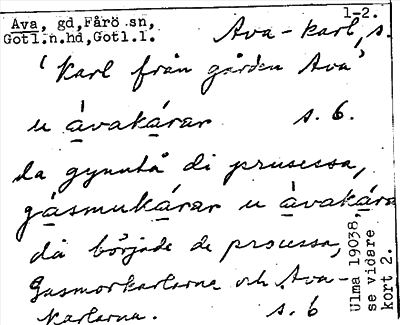 1-2.
Ava, gd, Fårö sn,
Gotl.n.hd, Gotl.l.
Ava-karl, s.
'karl från gården Ava'
u ávakárar s. 6.
da gynntå di prusessa,
gásmukárar u ávakára
då började de processa,
Gasmorkarlarna och Ava-
karlarna. s. 6
Ulma 19038,
se vidare
kort 2.